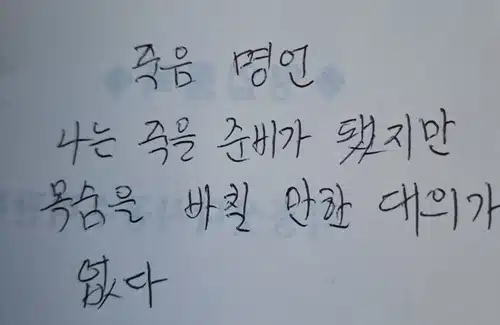 죽음 명언
나는 죽을 준비가 됐지만
목숨을 바칠 만한 대의가
없다